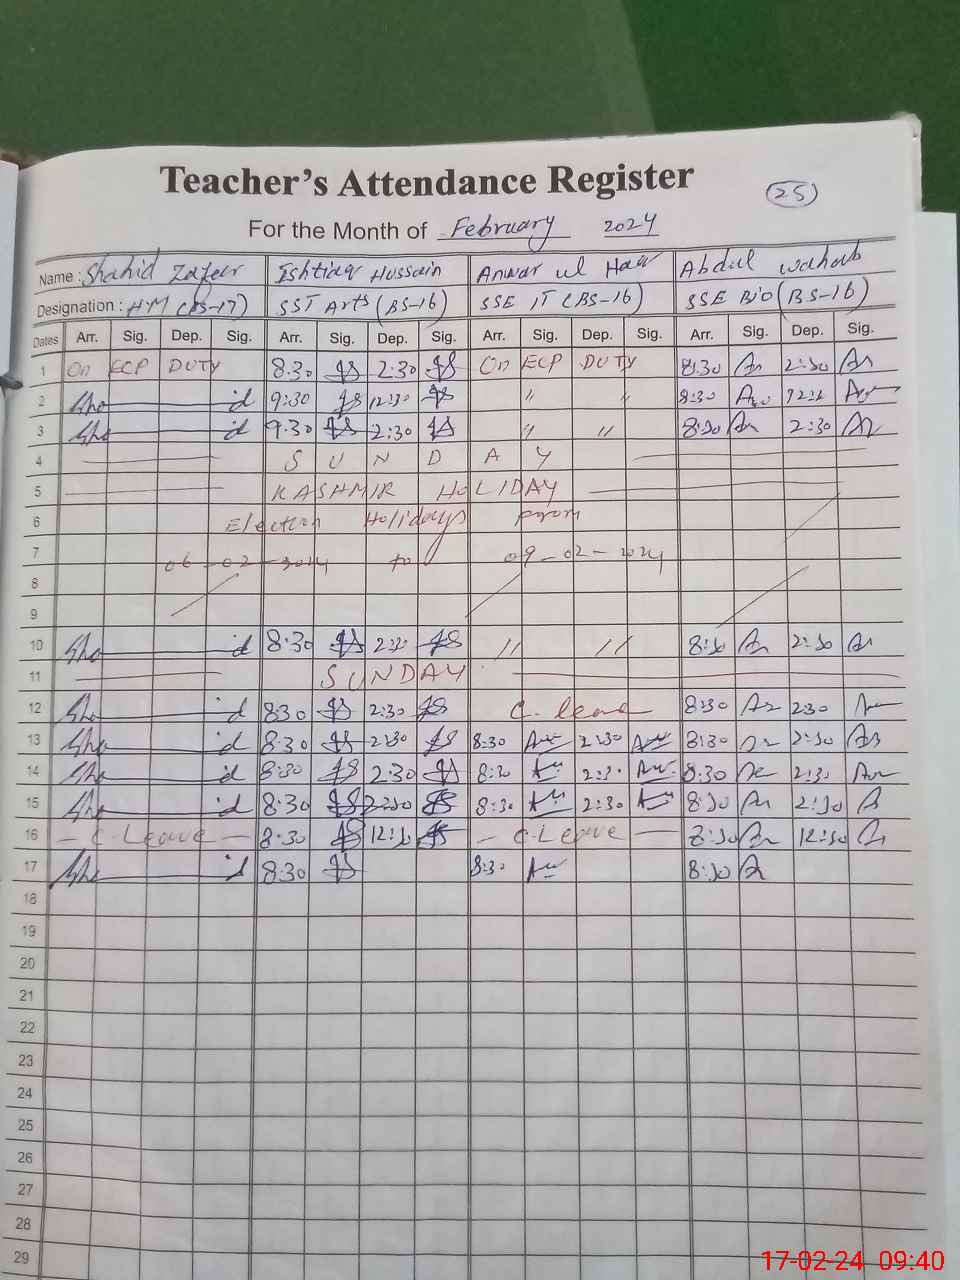 Teacher's Attendance Register
25
For the Month of February 2024
Name : Shahid Zafeer Ishtiaq Hussain Anwar ul Haq Abdul Wahab
Designation : HM (BS-17) SST Arts (BS-16) SSE IT (BS-16) SSE Bio (BS-16)
Dates Arr. Sig. Dep. Sig. Arr. Sig. Dep. Sig. Arr. Sig. Dep. Sig. Arr. Sig. Dep. Sig.
1 On ECP DUTY 8.30 2:30 On ECP DUTY 8:30 2:30
2 Sha id 9:30 12:30 " " 8:30
3 Sha id 9.30 2:30 " " 8:30 2:30
4 SUNDAY
5 KASHMIR HOLIDAY
6 Election Holidays from
7 06-02-2024 to 09-02-2024
8
9
10 Sha id 8:30 2:30 " " 8:30 2:30
11 SUNDAY
12 Sha id 8:30 2:30 C. leave 8:30 2:30
13 Sha id 8:30 2:30 8:30 2:30 8:30 2:30
14 Sha id 8:30 2:30 8:30 2:30 8:30 2:30
15 Sha id 8:30 2:30 8:30 2:30 8:30 2:30
16 - C. Leave - 8:30 12:30 - C. Leave - 8:30 12:30
17 Sha id 8:30 8:30 8:30
18
19
20
21
22
23
24
25
26
27
28
29
17-02-24 09:40